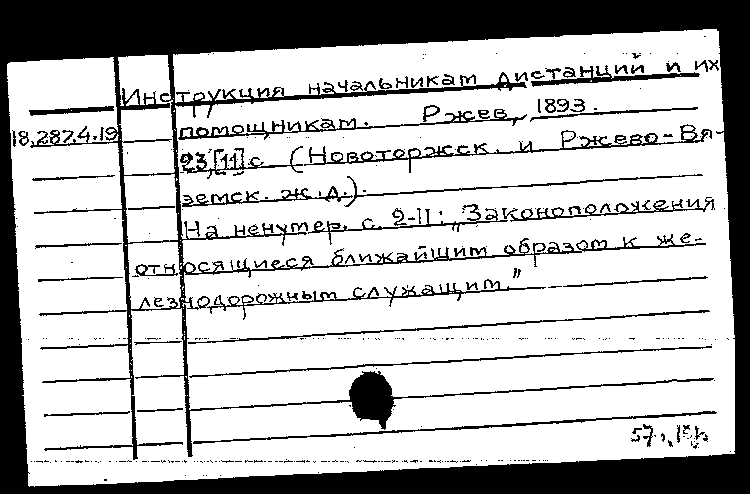 Инструкция начальникам дистанций и их
18.287.4.19
помощникам. Ржев, 1893.
23,[11]с. (Новоторжск. и Ржево-Вя-
земск. ж.д.).
На ненумер. с. 2-11: „Законоположения
относящиеся ближайшим образом к же-
лезнодорожным служащим."